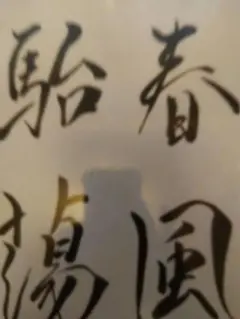 春風
駘蕩